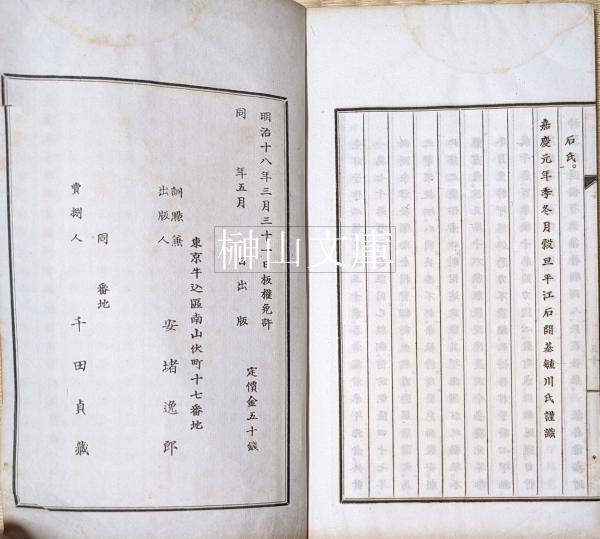 石氏。
嘉慶元年季冬月穀旦平江石開基鏸川氏謹識
明治十八年三月三十日板權免許
同年五月 日出版
定價金五十錢
東京牛込區南山伏町十七番地
訓點兼出版人 安堵逸郎
同番地
賣捌人 千田貞藏
榊山文庫